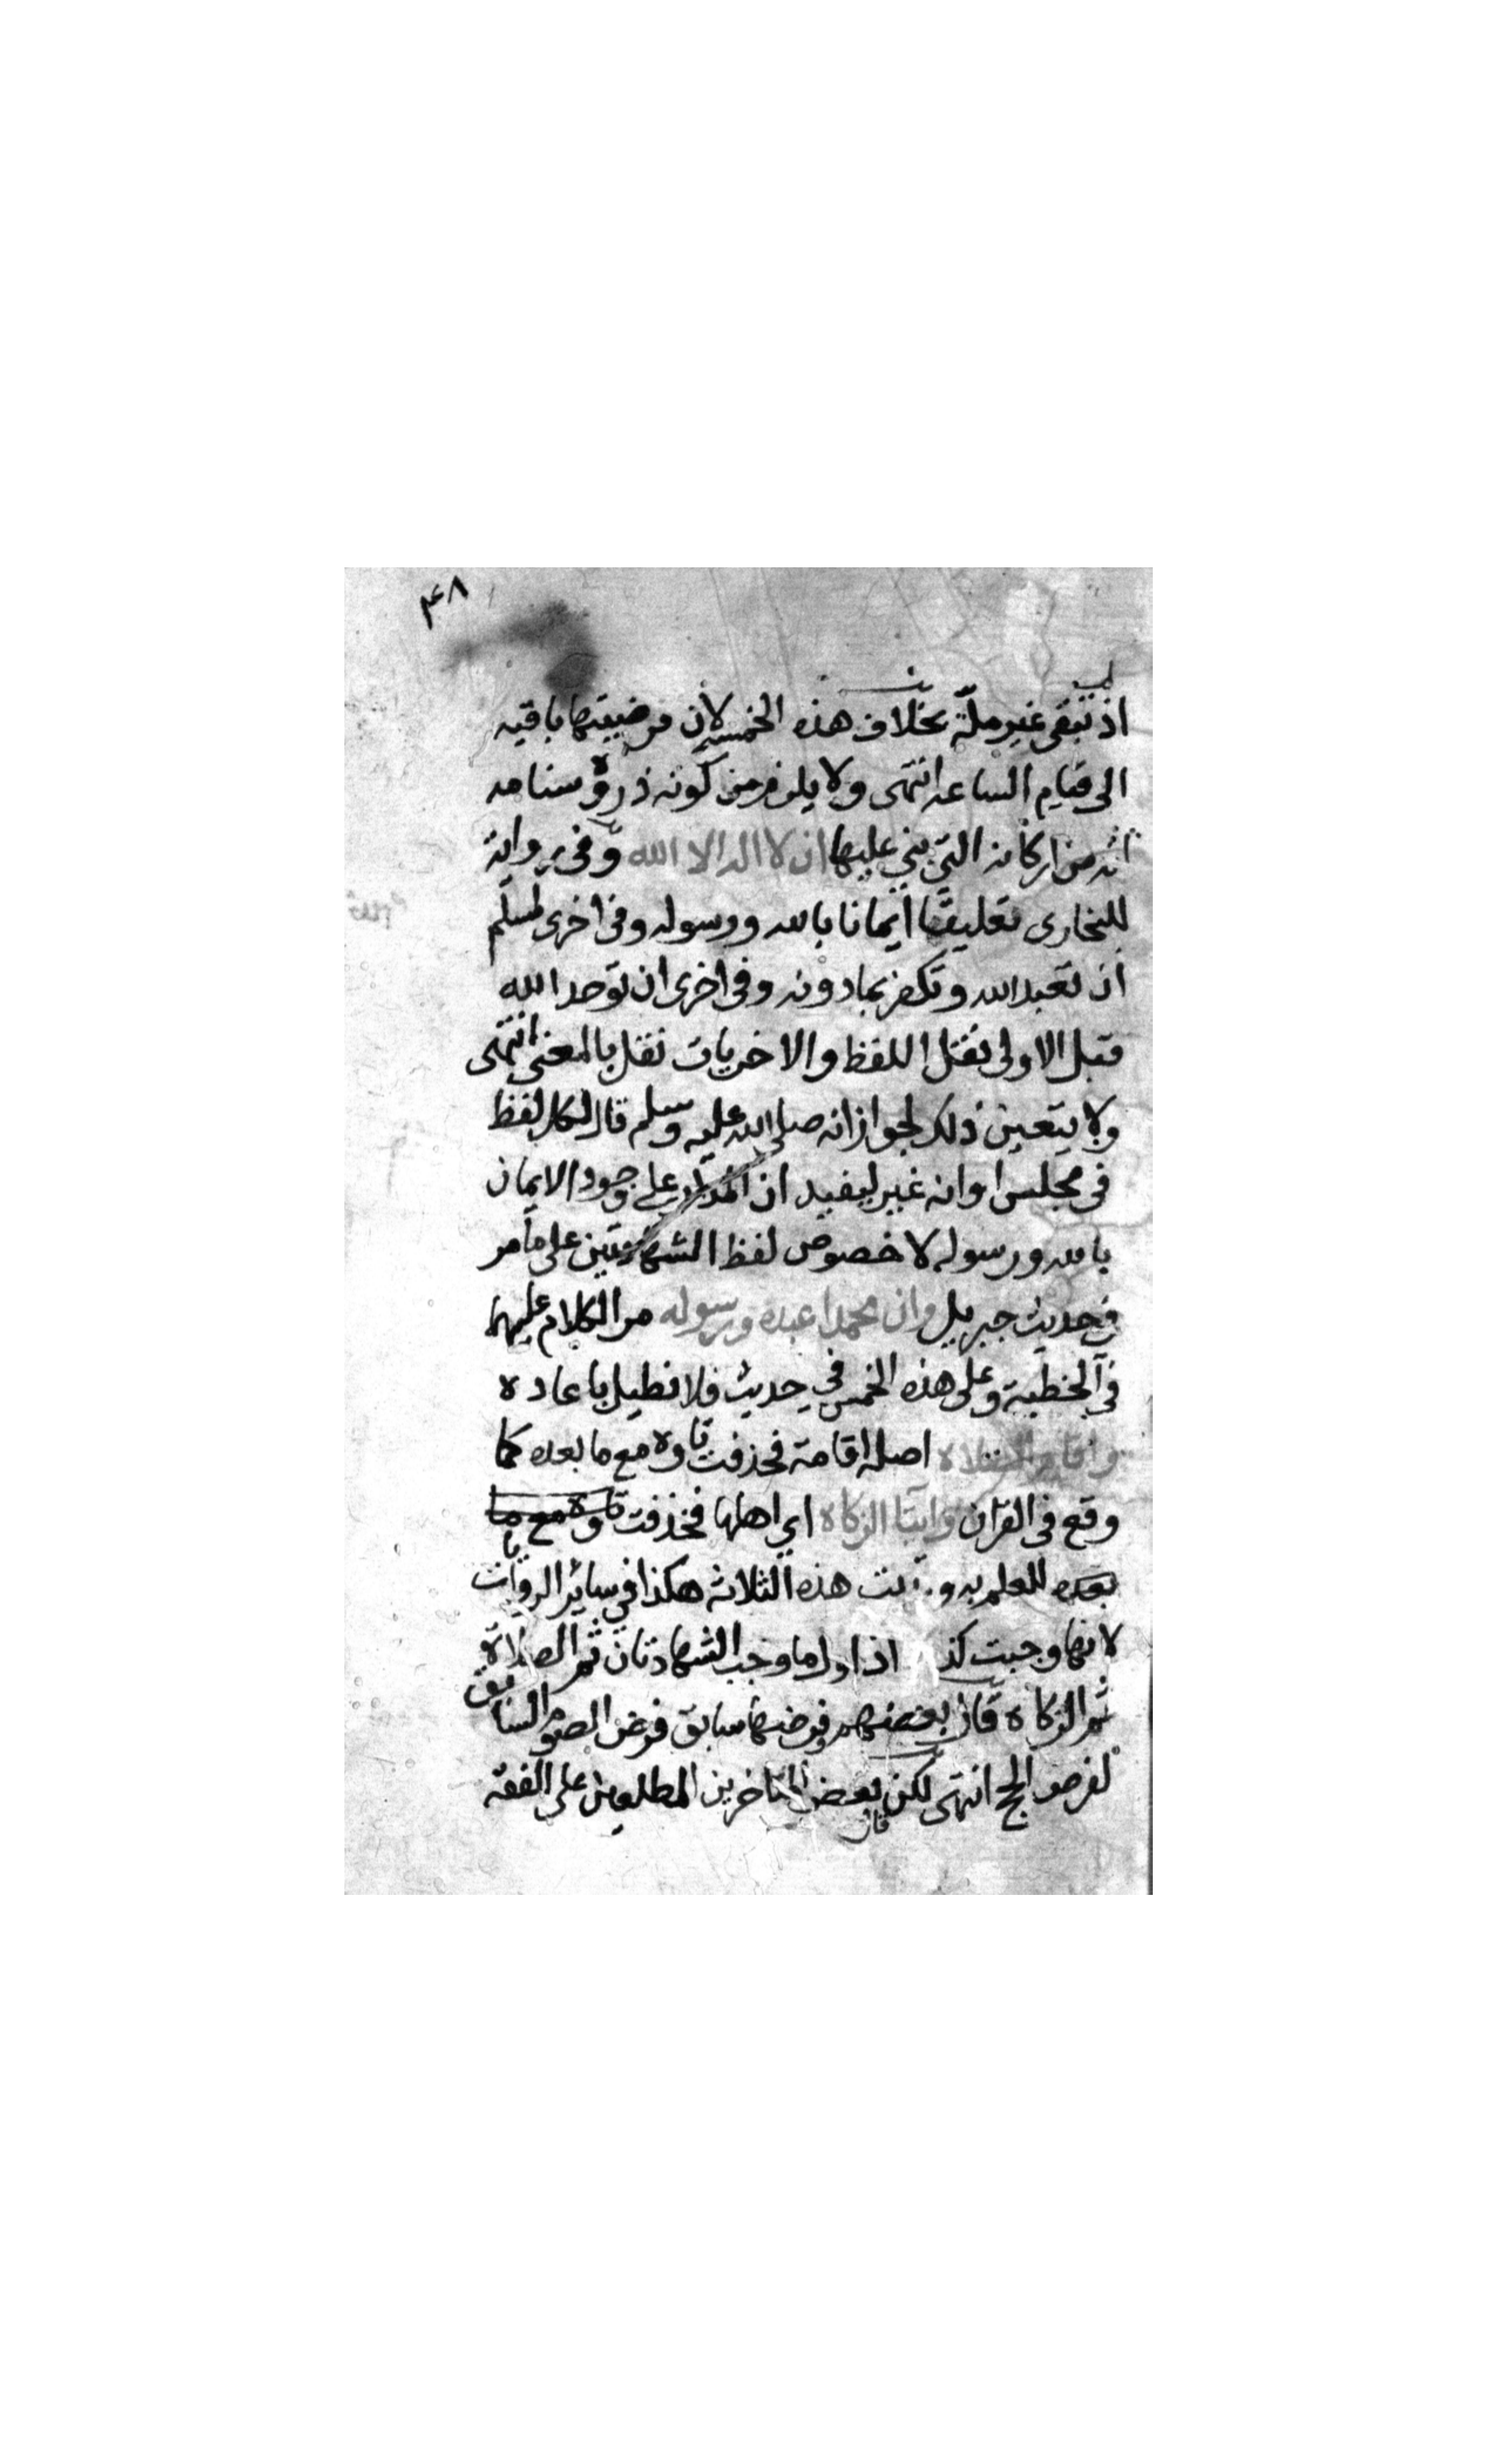 ٤٨
اذ تبقى غير ملّة بخلاف هذه الخمسه لان فرضيتها باقيه
الى قيام الساعه انتهى ولا يلزم من كونه ذروة سنامه
انه من اركانه التي بني عليها ان لا اله الا الله وفى رواية
للبخارى تعليقا ايمانا بالله ورسوله وفى اخرى لمسلم
ان تعبد الله وتكفر بما دونه وفى اخرى ان توحد الله
قبل الاولى نقل اللفظ والاخريات نقل بالمعنى انتهى
ولا يتعين ذلك لجواز انه صلى الله عليه وسلم قال كل لفظ
فى مجلس او انه غير ليفيد ان المدار على وجود الايمان
بالله ورسوله لا خصوص لفظ الشهادتين على ما مر
فى حديث جبريل وان محمدا عبده ورسوله مر الكلام عليهما
فى الخطبة وعلى هذه الخمس في حديث فلا نطيل باعاده
واقام الصلاه اصله اقامة فحذفت تاوه مع ما بعده كما
وقع فى القران وايتا الزكاه اي اهلها فحذفت تاوه مع ما
بعده للعلم به و هذه الثلاثه هكذا في سائر الروايات
لانها وجبت كذ اذ اول ما وجب الشهادتان ثم الصلاة
ثم الزكاة قال بعضهم وفرضها سابق فرض الصوم السابق
لفرض الحج انتهى لكن قال بعض المتاخرين المطلعين على الفقه